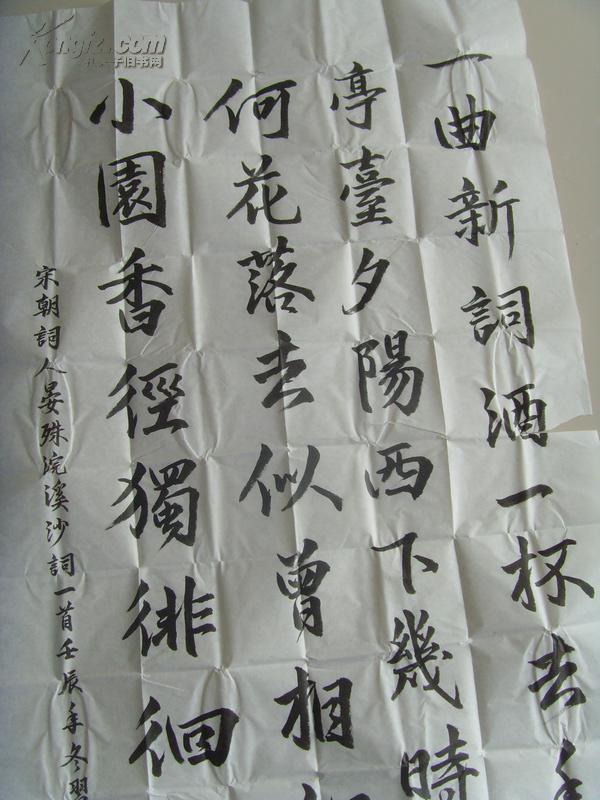 一曲新詞酒一杯去年
亭臺夕陽西下幾時
何花落去似曾相
小園香徑獨徘徊
宋朝詞人晏殊浣溪沙詞一首壬辰年冬習
Kongfz.com
孔夫子旧书网